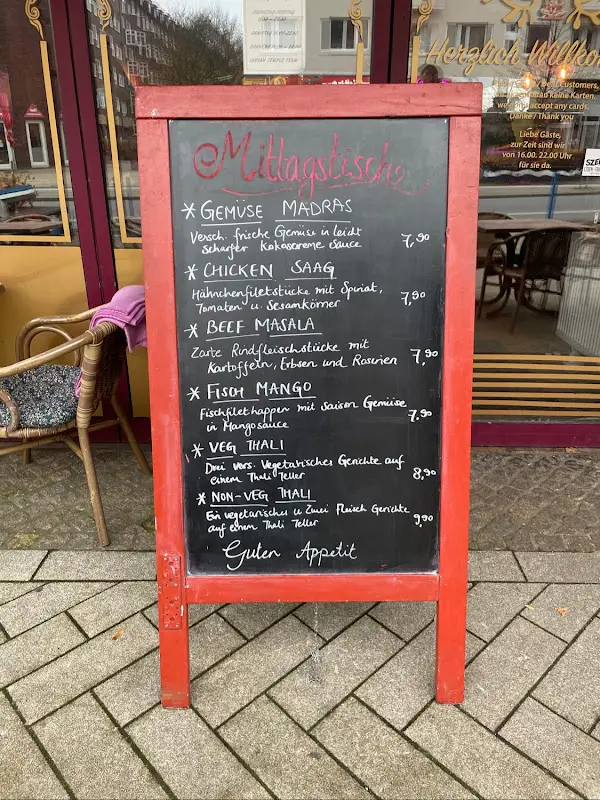 Herzlich Willko
keine Karten.
we accept any cards.
Danke / Thank you
Liebe Gäste,
zur Zeit sind wir
von 16.00. 22.00 Uhr
für sie da.
Mittagstisch
* GEMÜSE MADRAS
Versch. frische Gemüse in leicht
scharfer Kokoscreme sauce 7,90
* CHICKEN SAAG
Hähnchenfiletstücke mit Spinat,
Tomaten u. Sesamkörner 7,90
* BEEF MASALA
Zarte Rindfleischstücke mit
Kartoffeln, Erbsen und Rosinen 7,90
* FISCH MANGO
Fischfilethappen mit Saison Gemüse
in Mangosauce 7,90
* VEG THALI
Drei vers. Vegetarisches Gerichte auf
einem Thali Teller 8,90
* NON-VEG THALI
Ein vegetarisches u. Zwei Fleisch Gerichte
auf einem Thali Teller 9,90
Guten Appetit